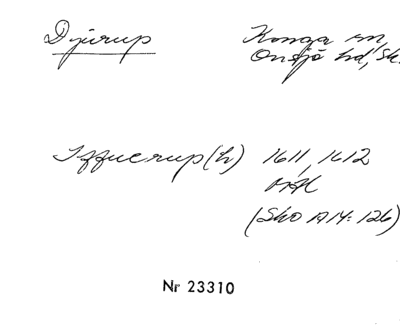 Djurup Konga sn,
Onsjö hd, Sk.
Iffuerup(h) 1611, 1612
(Sko A14: 126)
Nr 23310